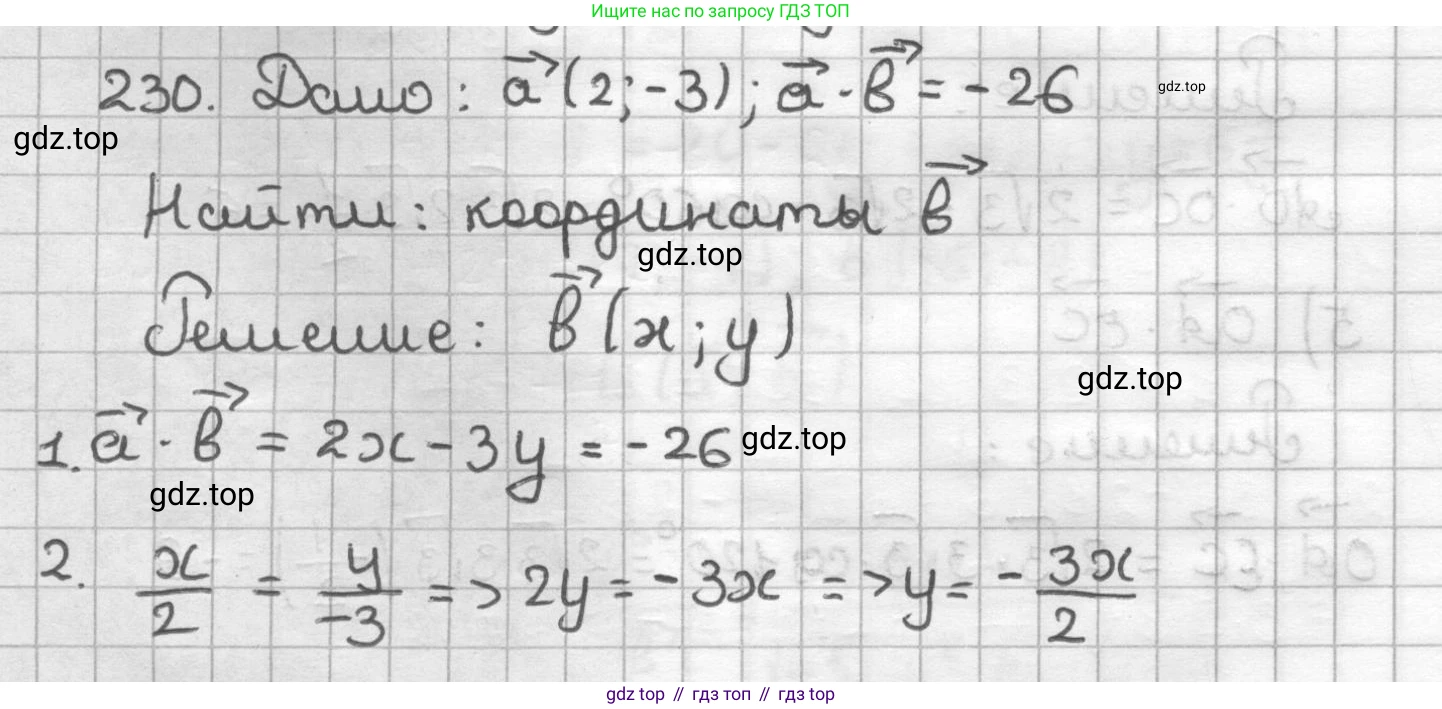 Ищите нас по запросу ГДЗ ТОП
230. Дано: a⃗ (2; -3); a⃗ · b⃗ = -26
gdz.top
gdz.top
Найти: координаты b⃗
gdz.top
Решение: b⃗ (x; y)
gdz.top
1. a⃗ · b⃗ = 2x - 3y = -26
gdz.top
gdz.top
2. x/2 = y/-3 => 2y = -3x => y = - 3x/2
gdz.top // гдз топ // гдз top